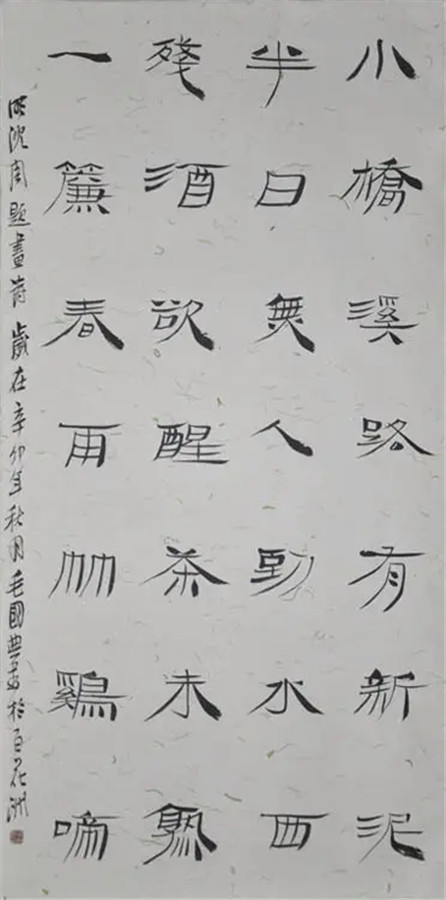 小橋溪路有新泥
半日無人到水西
殘酒欲醒茶未熟
一簾春雨竹鷄啼
明沈周題畫詩 歲在辛卯年秋月毛國典書於百花洲